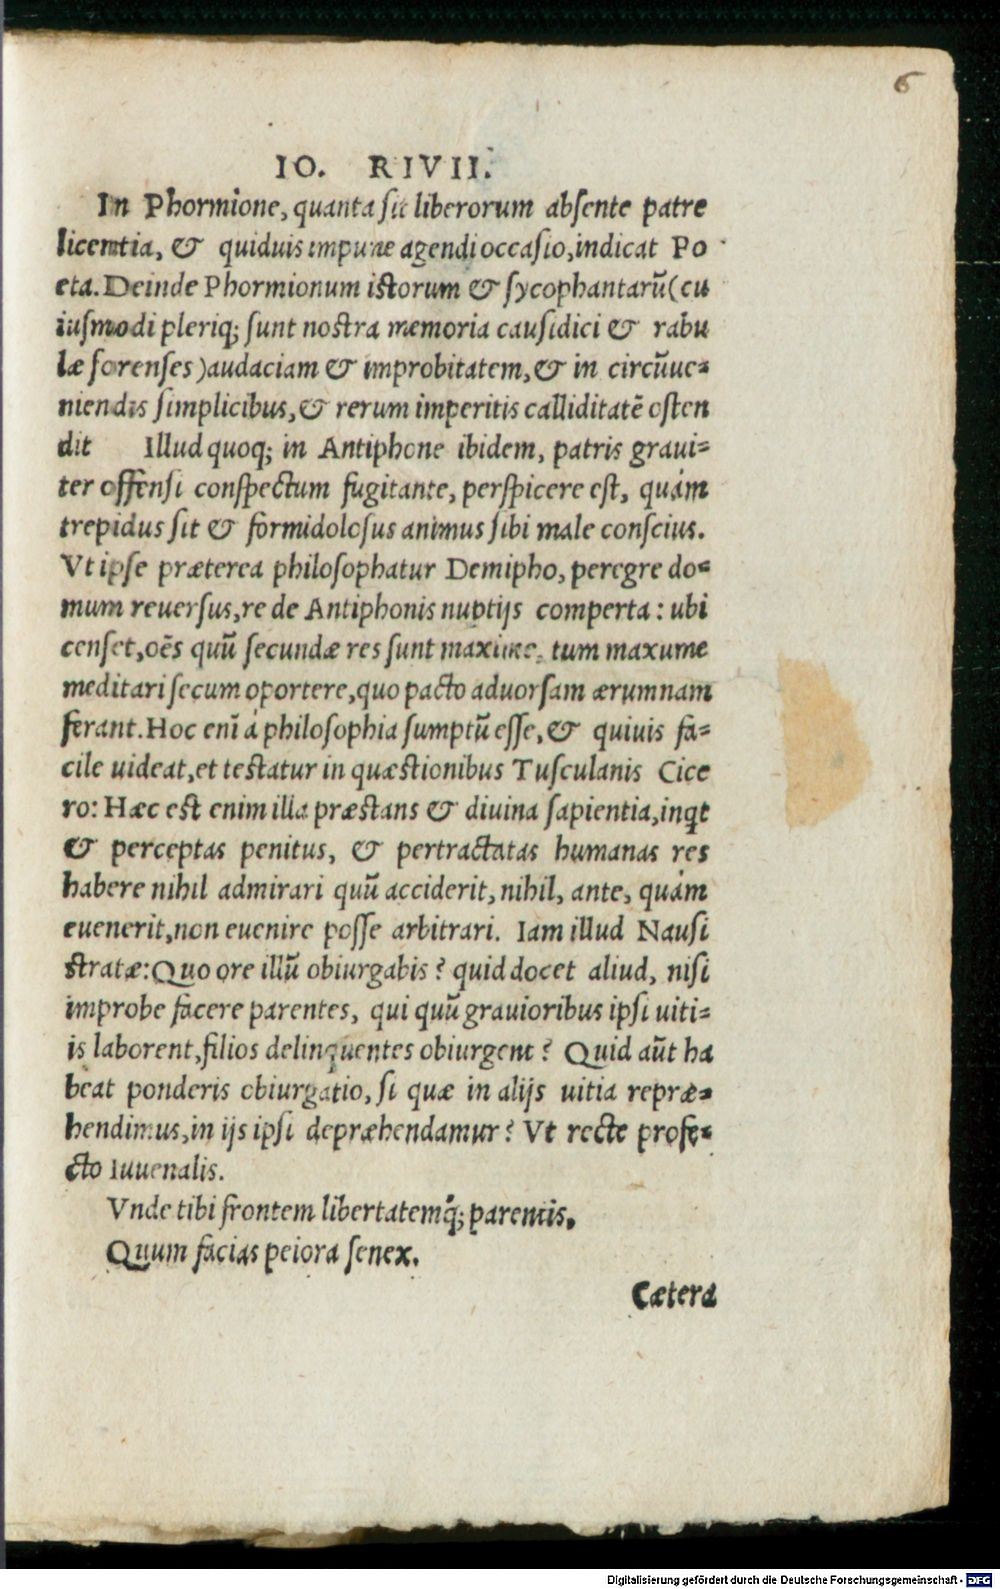 6
IO. RIVII.
In Phormione, quanta sit liberorum absente patre
licentia, & quiduis impune agendi occasio, indicat Po
eta. Deinde Phormionum istorum & sycophantarū (cu
iusmodi pleriq; sunt nostra memoria causidici & rabu
læ forenses) audaciam & improbitatem, & in circūue-
niendis simplicibus, & rerum imperitis calliditatē osten
dit Illud quoq; in Antiphone ibidem, patris graui-
ter offensi conspectum fugitante, perspicere est, quàm
trepidus sit & formidolosus animus sibi male conscius.
Vt ipse præterea philosophatur Demipho, peregre do-
mum reuersus, re de Antiphonis nuptijs comperta: ubi
censet, oēs quū secundæ res sunt maxime, tum maxume
meditari secum oportere, quo pacto aduorsam ærumnam
ferant. Hoc enī à philosophia sumptū esse, & quiuis fa-
cile uideat, et testatur in quæstionibus Tusculanis Cice
ro: Hæc est enim illa præstans & diuina sapientia, inqt
& perceptas penitus, & pertractatas humanas res
habere nihil admirari quū acciderit, nihil, ante, quàm
euenerit, non euenire posse arbitrari. Iam illud Nausi
stratæ: Quo ore illū obiurgabis? quid docet aliud, nisi
improbe facere parentes, qui quū grauioribus ipsi uiti-
is laborent, filios delinquentes obiurgent? Quid aūt ha
beat ponderis obiurgatio, si quæ in alijs uitia repræ-
hendimus, in ijs ipsi depræhendamur? Vt recte profe-
cto Iuuenalis.
Vnde tibi frontem libertatemq́; parentis,
Quum facias peiora senex.
Cætera
Digitalisierung gefördert durch die Deutsche Forschungsgemeinschaft - DFG